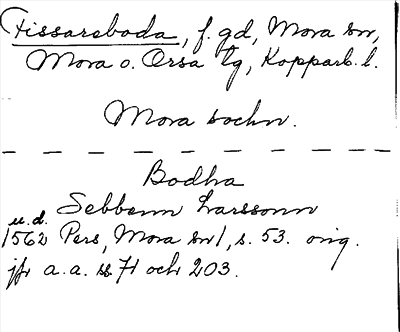 Fissareboda, f. gd, Mora sn,
Mora o. Orsa tg, Kopparb. l.
Mora sochn.
Bodha
Sebbenn Larssonn
u.d.
1562 Pers, Mora sn/, s. 53. orig.
jfr a.a. ss 71 och 203.